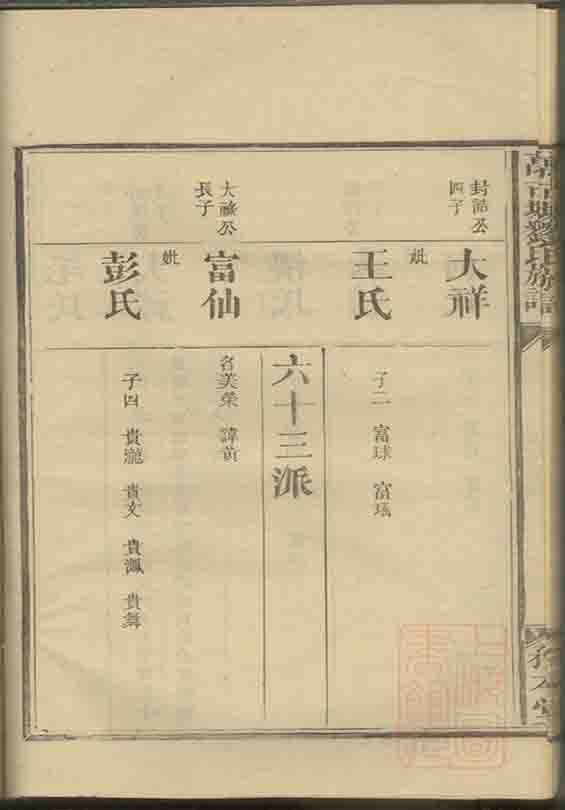 封誥公
四子
大祥
妣
王氏
子二 富球 富瑤
六十三派
大祿公
長子
富仙
名美榮 諱黃
妣
彭氏
子四 貴瀧 貴文 貴渢 貴舞
氏族譜